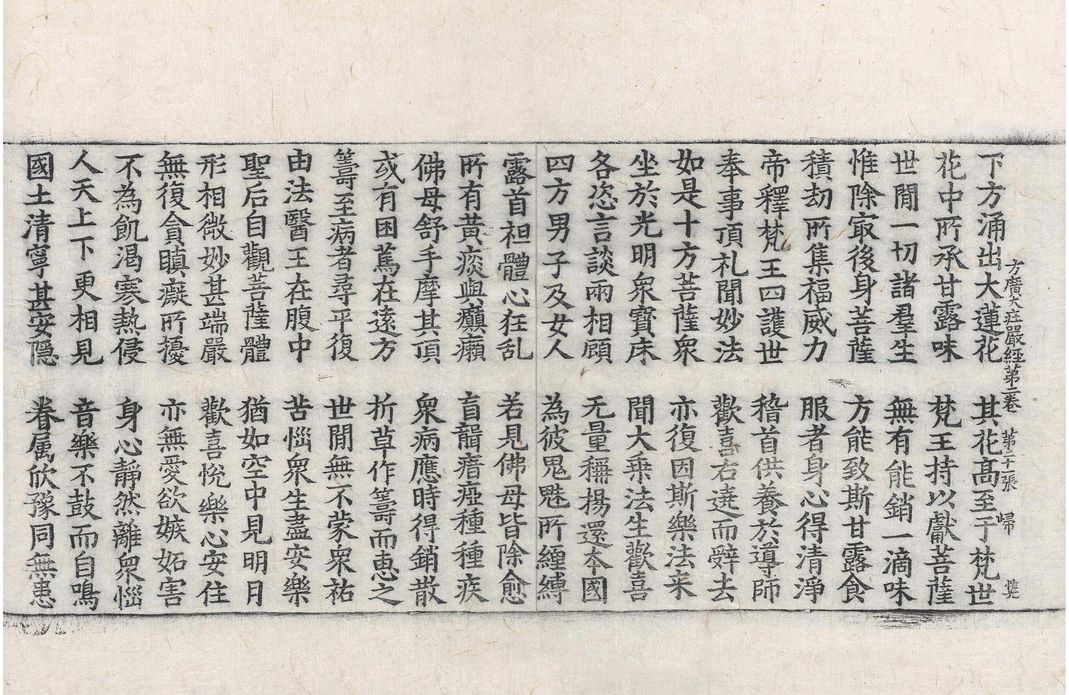 方廣大莊嚴經第二卷 第二十張 歸
下方涌出大蓮花 其花高至于梵世
花中所承甘露味 梵王持以獻菩薩
世閒一切諸羣生 無有能銷一滴味
惟除㝡後身菩薩 方能致斯甘露食
積劫所集福威力 服者身心得清淨
帝釋梵王四護世 稽首供養於導師
奉事頂礼聞妙法 歡喜右遶而辤去
如是十方菩薩衆 亦復因斯樂法来
坐於光明衆寶床 聞大乗法生歡喜
各恣言談兩相顧 无量稱揚還本國
四方男子及女人 為彼鬼魅所纏縛
露首袒體心狂乱 若見佛母皆除愈
所有黃痰與癲癩 盲聾瘖瘂種種疾
佛母舒手摩其頂 衆病應時得銷散
或有困篤在遠方 折草作籌而惠之
籌至病者尋平復 世閒無不蒙衆祐
由法醫王在腹中 苦惱衆生盡安樂
聖后自觀菩薩體 猶如空中見明月
形相微妙甚端嚴 歡喜悅樂心安住
無復貪瞋癡所擾 亦無愛欲嫉妬害
不為飢渴寒熱侵 身心靜然離衆惱
人天上下更相見 音樂不鼓而自鳴
國土清寧甚安隱 眷属欣豫同無恚